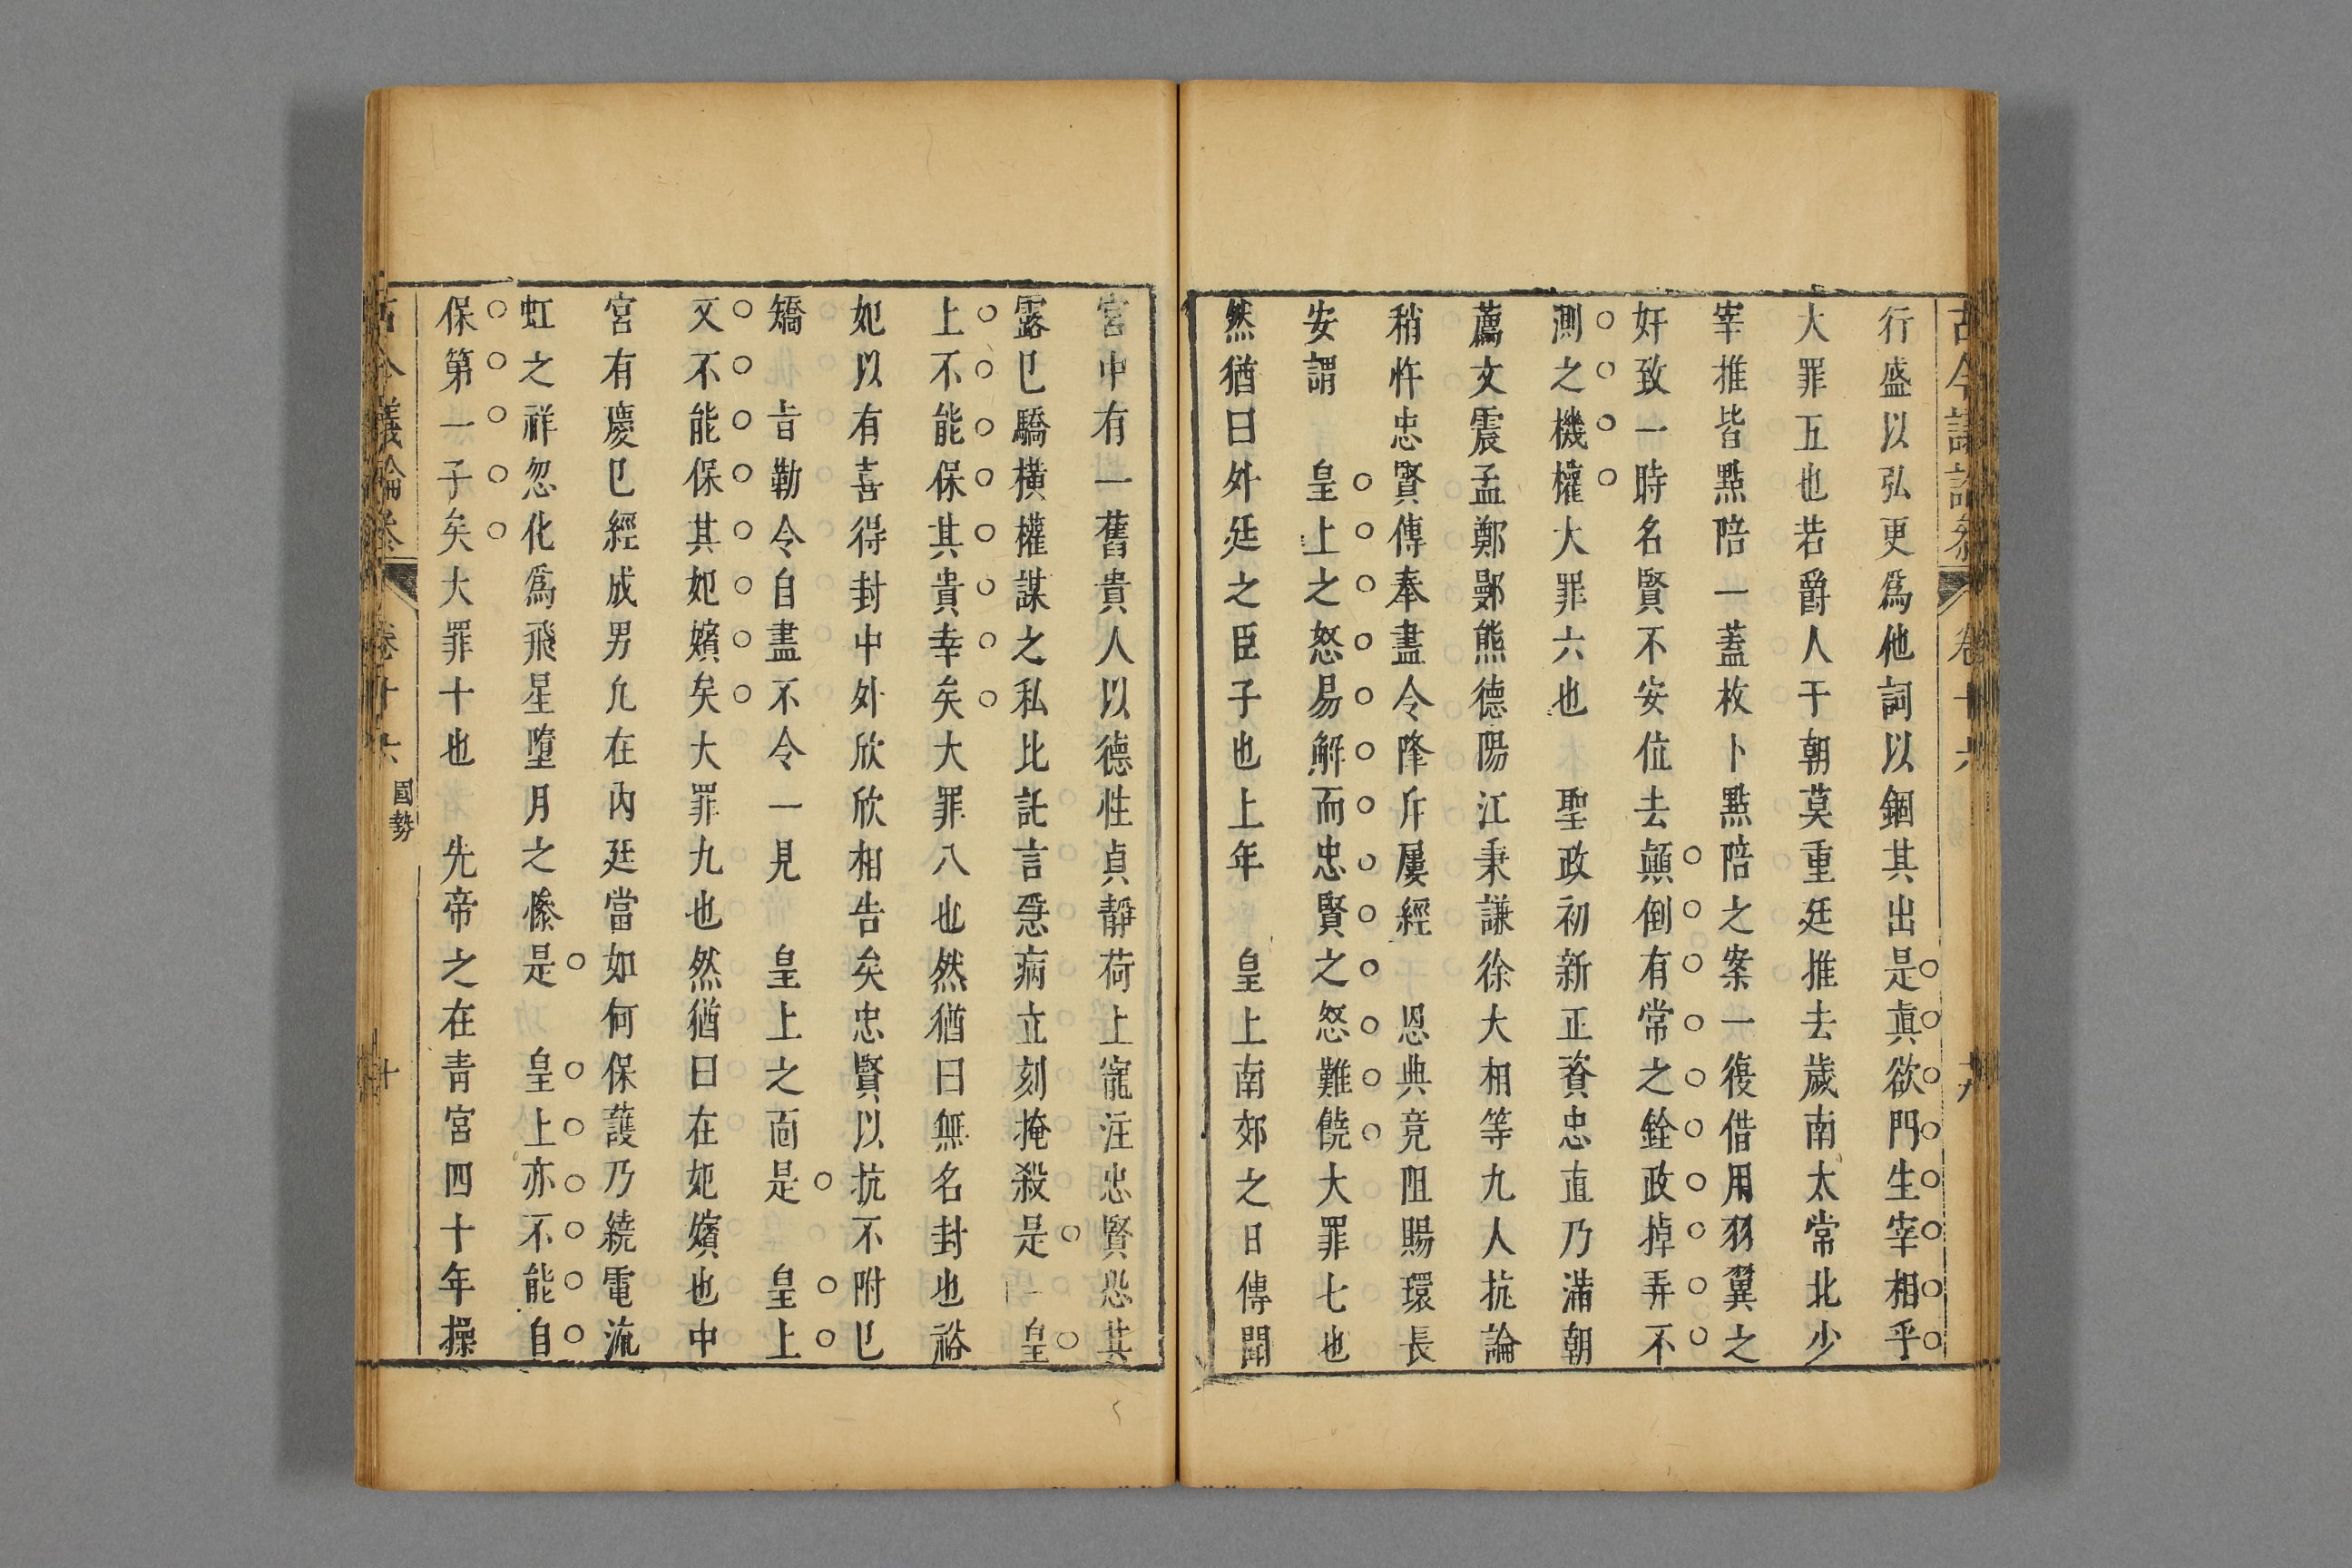 古今議論參 卷十六 十九
行盛以弘更爲他詞以錮其出是眞欲門生宰相乎
大罪五也若爵人于朝莫重廷推去歲南太常北少
宰推皆點陪一蓋枚卜點陪之案一復借用羽翼之
奸致一時名賢不安位去顛倒有常之銓政掉弄不
測之機權大罪六也 聖政初新正資忠直乃滿朝
薦文震孟鄭鄤熊德陽江秉謙徐大相等九人抗論
稍忤忠賢傳奉盡令降斥屢經 恩典竟阻賜環長
安謂 皇上之怒易解而忠賢之怒難饒大罪七也
然猶曰外廷之臣子也上年 皇上南郊之日傳聞
宮中有一舊貴人以德性貞靜荷上寵注忠賢恐其
露已驕橫權謀之私比託言急病立刻掩殺是 皇
上不能保其貴幸矣大罪八也然猶曰無名封也裕
妃以有喜得封中外欣欣相告矣忠賢以抗不附已
矯 旨勒令自盡不令一見 皇上之面是 皇上
又不能保其妃嬪矣大罪九也然猶曰在妃嬪也中
宮有慶已經成男凢在內廷當如何保護乃繞電流
虹之祥忽化爲飛星墮月之慘是 皇上亦不能自
保第一子矣大罪十也 先帝之在青宮四十年操
古今議論參 卷十六 國勢 十